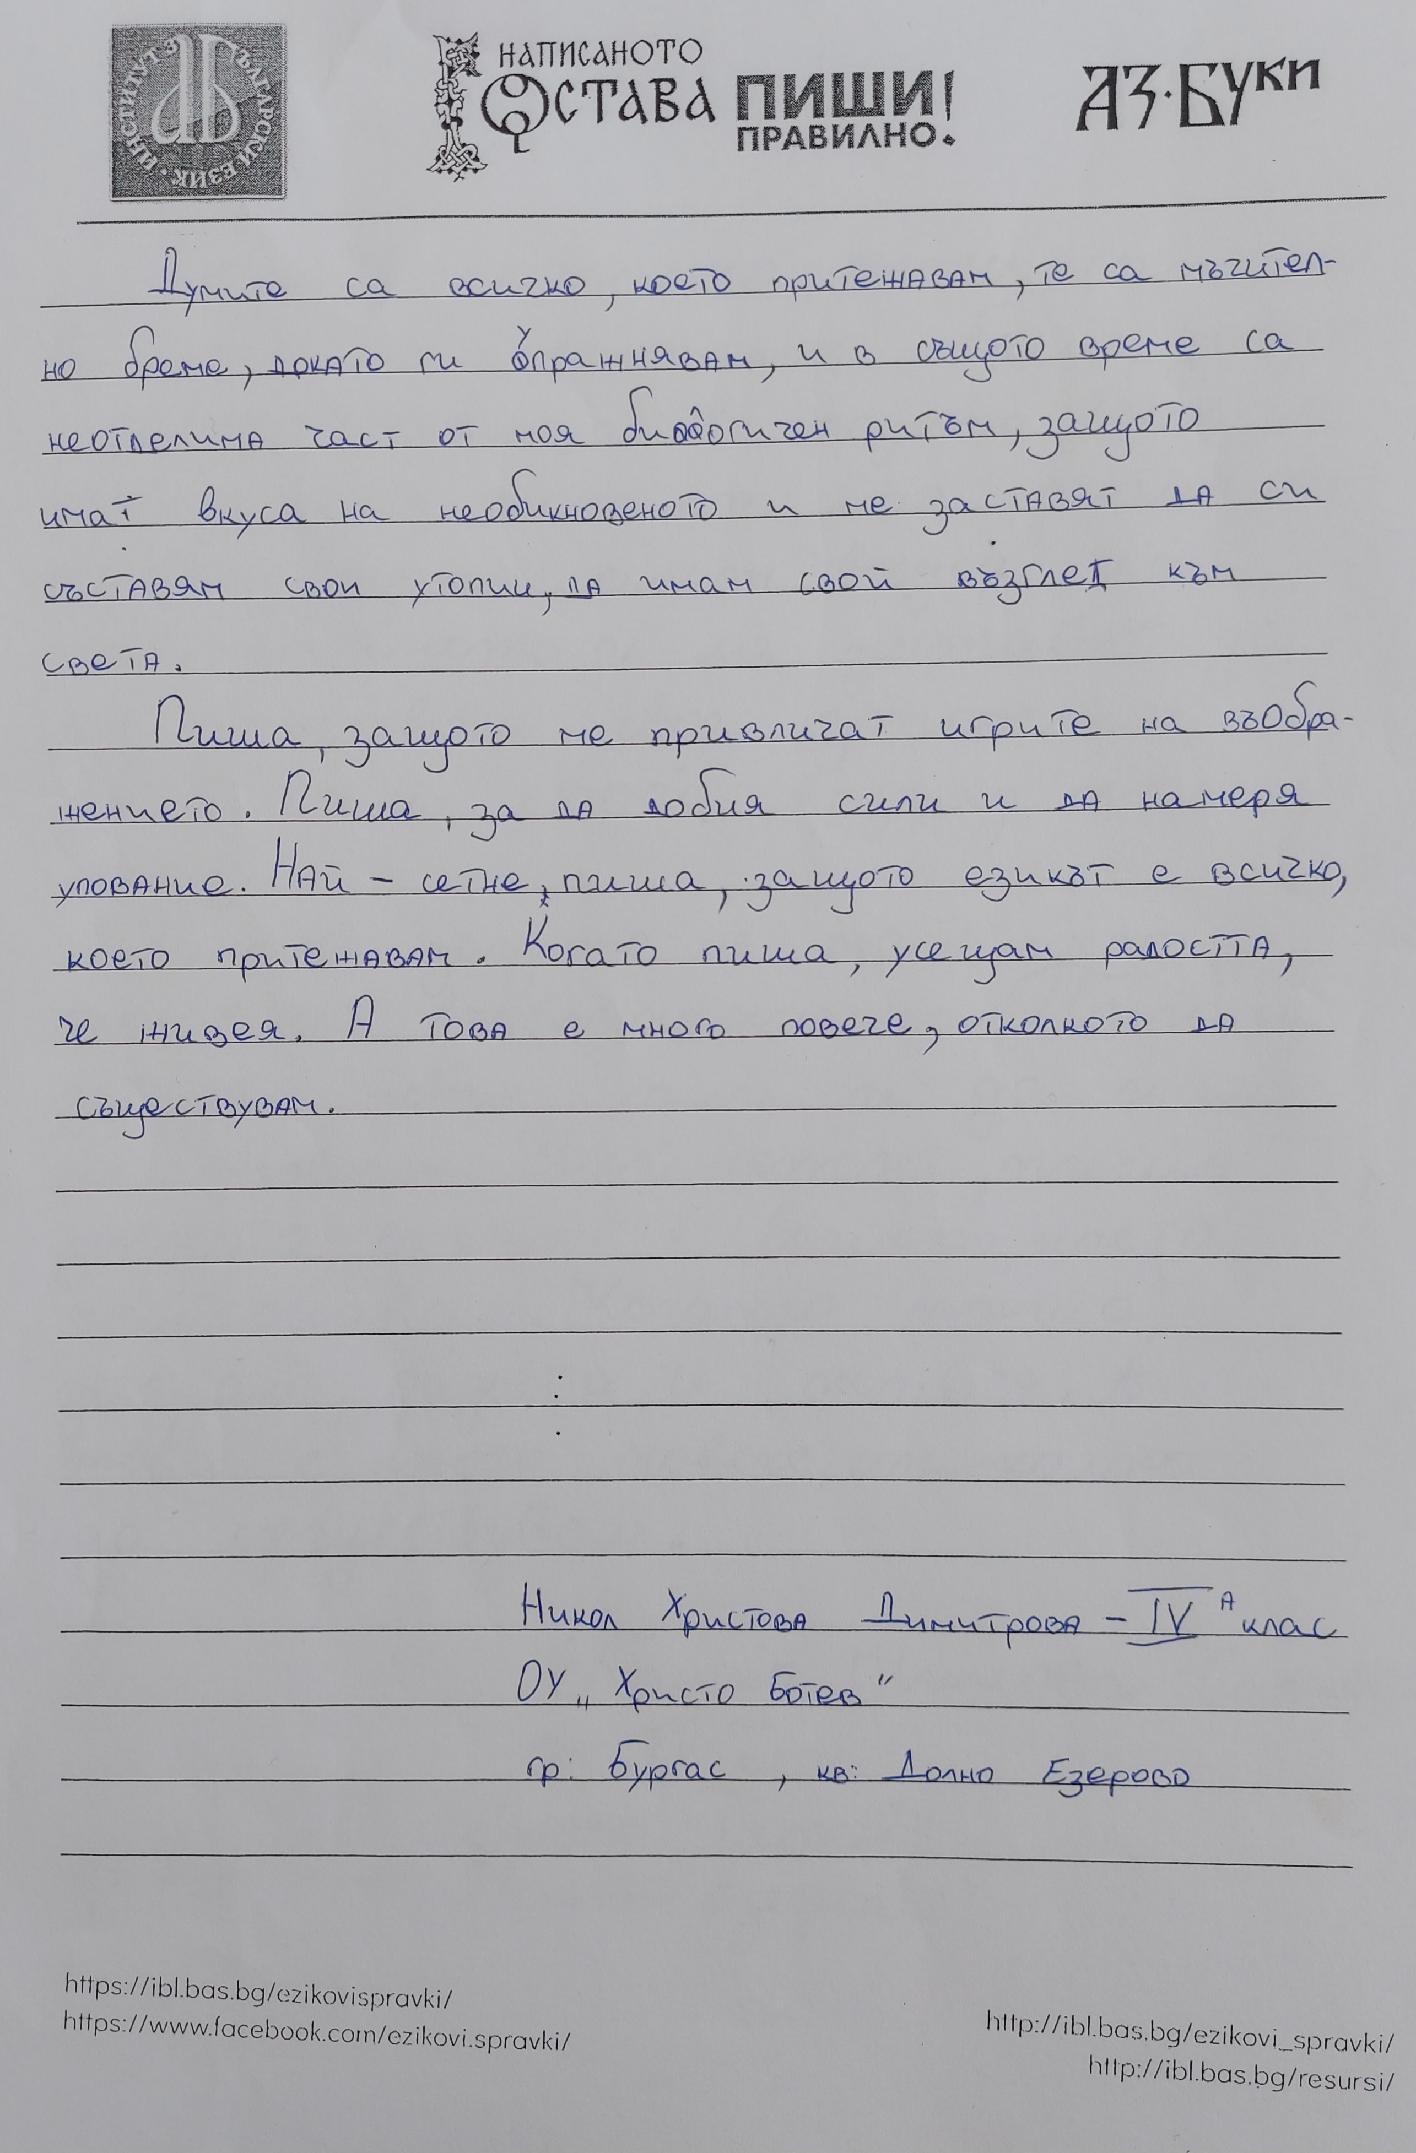 ИНСТИТУТ ЗА БЪЛГАРСКИ ЕЗИК
НАПИСАНОТО
ОСТАВА
ПИШИ!
ПРАВИЛНО.
АЗ·БУКИ
Думите са всичко, което притежавам, те са мъчител-
но бреме, докато ги упражнявам, и в същото време са
неотделима част от моя биологичен ритъм, защото
имат вкуса на необикновеното и ме заставят да си
съставям свои утопии, да имам свой възглед към
света.
Пиша, защото ме привличат игрите на въобра-
жението. Пиша, за да добия сили и да намеря
упование. Най - сетне, пиша, защото езикът е всичко,
което притежавам. Когато пиша, усещам радостта,
че живея. А това е много повече, отколкото да
съществувам.
Никол Христова Димитрова - IV А клас
ОУ „Христо Ботев"
гр: Бургас , кв: Долно Езерово
https://ibl.bas.bg/ezikovispravki/
https://www.facebook.com/ezikovi.spravki/
http://ibl.bas.bg/ezikovi_spravki/
http://ibl.bas.bg/resursi/